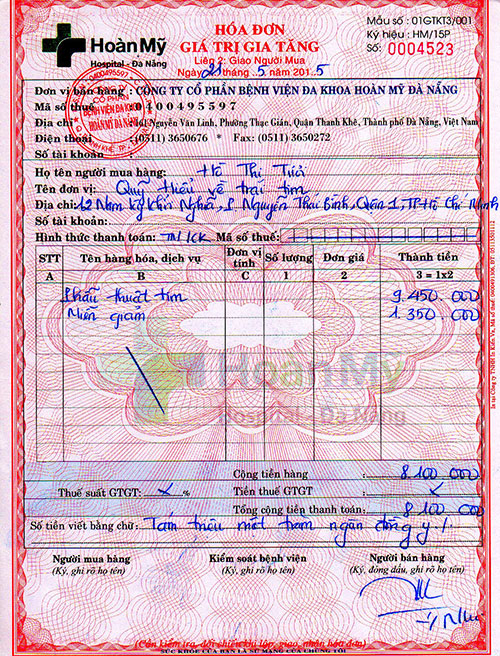 HoànMỹ
Hospital - Đà Nẵng
HÓA ĐƠN
GIÁ TRỊ GIA TĂNG
Liên 2: Giao Người Mua
Ngày 21 tháng 5 năm 2015
Mẫu số : 01GTKT3/001
Ký hiệu : HM/15P
Số: 0004523
Đơn vị bán hàng : CÔNG TY CỔ PHẦN BỆNH VIỆN ĐA KHOA HOÀN MỸ ĐÀ NẴNG
Mã số thuế : 0400495597
Địa chỉ : 161 Nguyễn Văn Linh, Phường Thạc Gián, Quận Thanh Khê, Thành phố Đà Nẵng, Việt Nam
Điện thoại : (0511) 3650676 * Fax: (0511) 3650272
Số tài khoản
Họ tên người mua hàng: Hồ Thị Tưới
Tên đơn vị: Quỹ thiểu về trái tim
Địa chỉ: 12 Nam Kỳ Khởi Nghĩa, P. Nguyễn Thái Bình, Quận 1, TP Hồ Chí Minh
Số tài khoản:
Hình thức thanh toán: TM/CK Mã số thuế:
STT Tên hàng hóa, dịch vụ Đơn vị tính Số lượng Đơn giá Thành tiền
A B C 1 2 3 = 1x2
Phẫu thuật tim 9.450.000
Miễn giảm 1.350.000
HoànMỹ
Hospital - Đà Nẵng
Cộng tiền hàng : 8.100.000
Thuế suất GTGT: X % Tiền thuế GTGT : X
Tổng cộng tiền thanh toán: 8.100.000
Số tiền viết bằng chữ: Tám triệu một trăm ngàn đồng y./.
Người mua hàng Kiểm soát bệnh viện Người bán hàng
(Ký, ghi rõ họ tên) (Ký, ghi rõ họ tên) (Ký, đóng dấu, ghi rõ họ tên)
Ý Như
(Cần kiểm tra, đối chiếu khi lập, giao, nhận hóa đơn)
SỨC KHỎE CỦA BẠN LÀ SỨ MẠNG CỦA CHÚNG TÔI